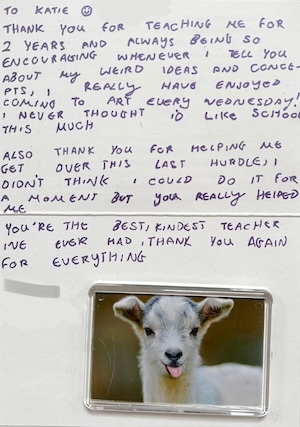 TO KATIE ☺
THANK YOU FOR TEACHING ME FOR
2 YEARS AND ALWAYS BEING SO
ENCOURAGING WHENEVER I TELL YOU
ABOUT MY WEIRD IDEAS AND CONCE-
PTS, I REALLY HAVE ENJOYED
COMING TO ART EVERY WEDNESDAY!
I NEVER THOUGHT I'D LIKE SCHOOL
THIS MUCH
ALSO THANK YOU FOR HELPING ME
GET OVER THIS LAST HURDLE, I
DIDN'T THINK I COULD DO IT FOR
A MOMENT BUT YOU REALLY HELPED
ME
YOU'RE THE BEST, KINDEST TEACHER
I'VE EVER HAD, THANK YOU AGAIN
FOR EVERYTHING